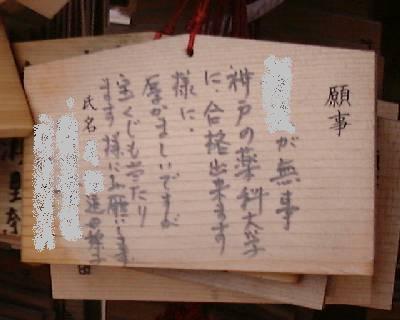 願事
が無事
神戸の薬科大学
に合格出来ます
様に、
厚かましいですが
宝くじも当たり
ます様にお願いします
氏名